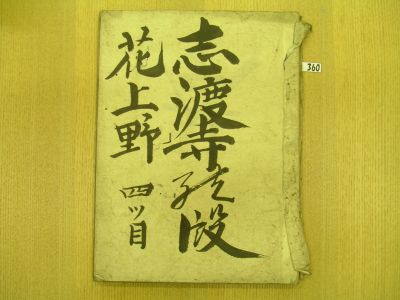 志渡寺の段
花上野 四ツ目
360